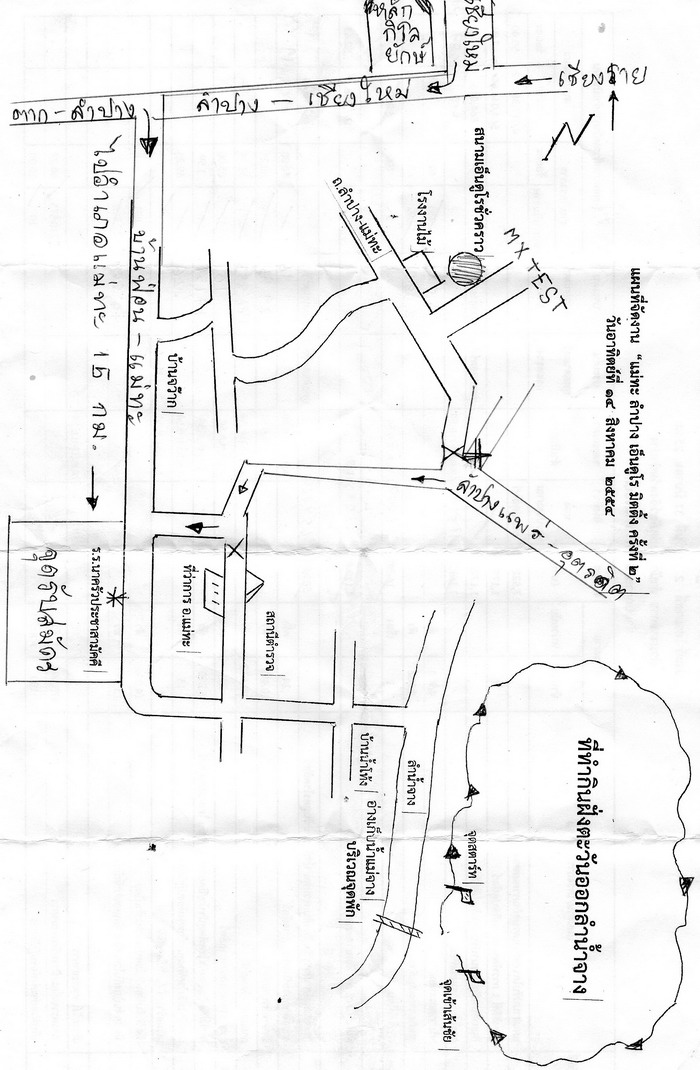 แผนที่จัดงาน “แม่ทะ ลำปาง เอ็นดูโร มิตติ้ง ครั้งที่ ๒”
วันอาทิตย์ที่ ๑๔ สิงหาคม ๒๕๕๔
เชียงราย
เชียงใหม่
หลัก
กิโล
ยักษ์
ลำปาง - เชียงใหม่
ตาก - ลำปาง
N
สนามเอ็นดูโรชั่วคราว
MX TEST
โรงงานไม้
ถ.ลำปาง-แม่ทะ
บ้านฟ่อน - แม่ทะ
ไปอำเภอแม่ทะ 15 กม.
บ้านจว๊าก
ลำปาง แพร่ - อุตรดิตถ์
สถานีตำรวจ
ที่ว่าการ อ.แม่ทะ
ร.ร.นาครัวประชาสามัคคี
จุดรับสมัคร
ที่ทำกินฝั่งตะวันออกลำน้ำจาง
จุดสตาร์ท
P
P
จุดเข้าเส้นชัย
ลำน้ำจาง
บ้านน้ำโท้ง
อ่างเก็บน้ำแม่จาง
บริเวณจุดพัก